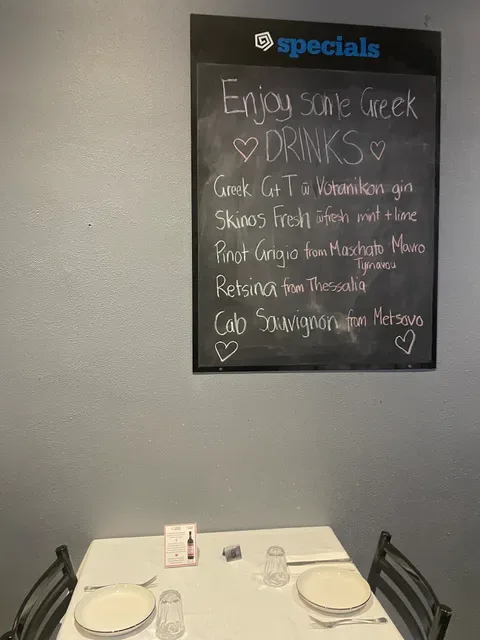 specials
Enjoy some Greek
DRINKS
Greek G+T w̄ Votanikon gin
Skinos Fresh w̄ fresh mint + lime
Pinot Grigio from Moschato Mavro
Tyrnavou
Retsina from Thessalia
Cab Sauvignon from Metsovo